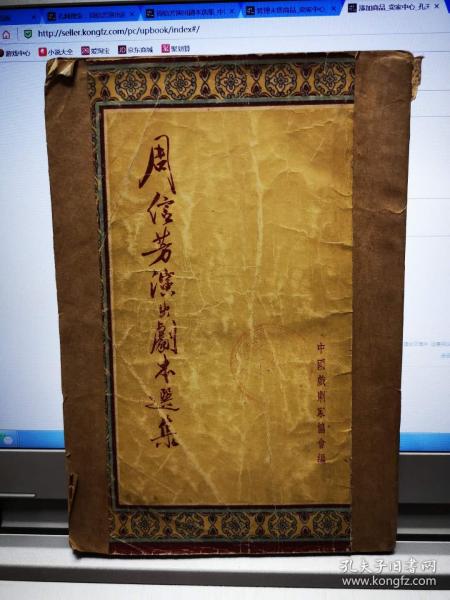 孔网
周信芳演出剧本选集_中
管理未售商品_卖家中心_
添加商品_卖家中心_孔夫
https://seller.kongfz.com/pc/upbook/index#/
游戏中心
小说大全
爱淘宝
京东商城
聚划算
周信芳演出劇本選集
中國戲劇家協會編
孔夫子旧书网
www.kongfz.com